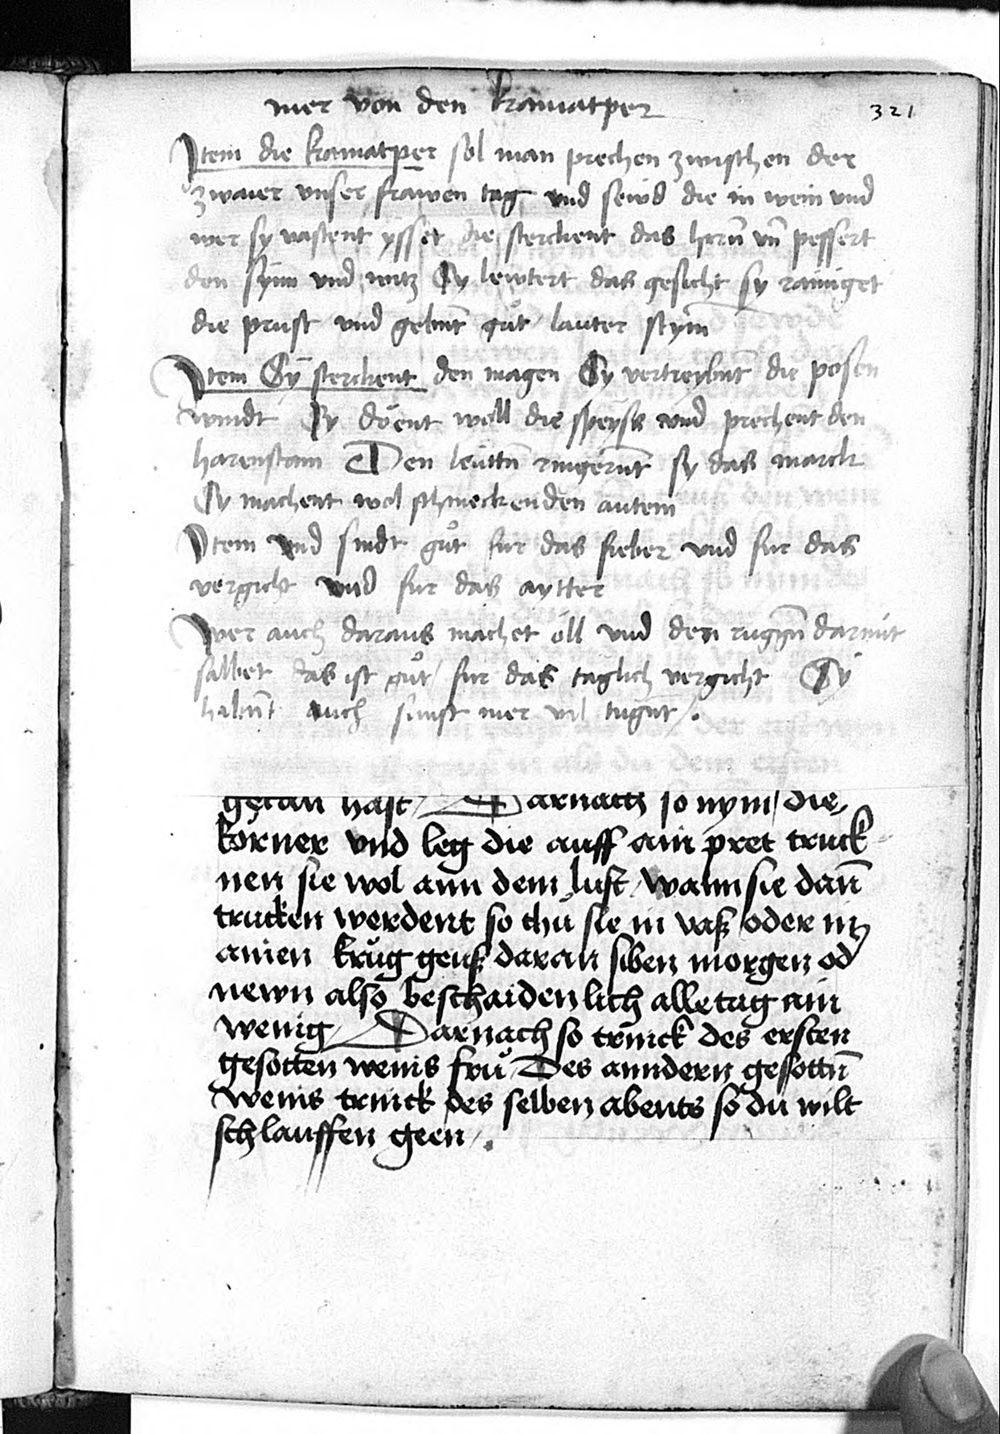 mer von den kramatper
321
Item die kramatper sol man prechen zwischen der
zwaier unser frawen tag und sewd die in wein und
wer sy vastent ysset die sterckent das hirn̄ vn̄ pessert
den synn und witz Sy lewtert das gesicht sy rainiget
die prust und gebnt gůt lauter stym
Item Sy sterckent den magen Sy vertreybnt die posen
windt Sy döent woll die speyss und prechent den
harenstain Den leuttn̄ ringernt sy das marck
Sy machent wol schmeckenden autem
Item und sindt gůt fur das fieber und fur das
vergicht und fur das aytter
Wer auch daraus machet öll und den ruggn̄ darmit
salbet das ist gůt fur das taglich vergicht Sy
habn̄t auch sunst mer vil tugnt
getan hast Darnach so nym die
körner vnd leg die auff ain pret truck
nen sie wol ann dem luft wann sie dan̄
trucken werdent so thů sie in vaß oder in
ainen krůg geuß daran siben morgen od
newn also beschaidenlich alle tag ain
wenig Darnach so trinck des ersten
gesotten weins frů Des anndern gesottn̄
weins trinck des selben abents so du wilt
schlauffen geen